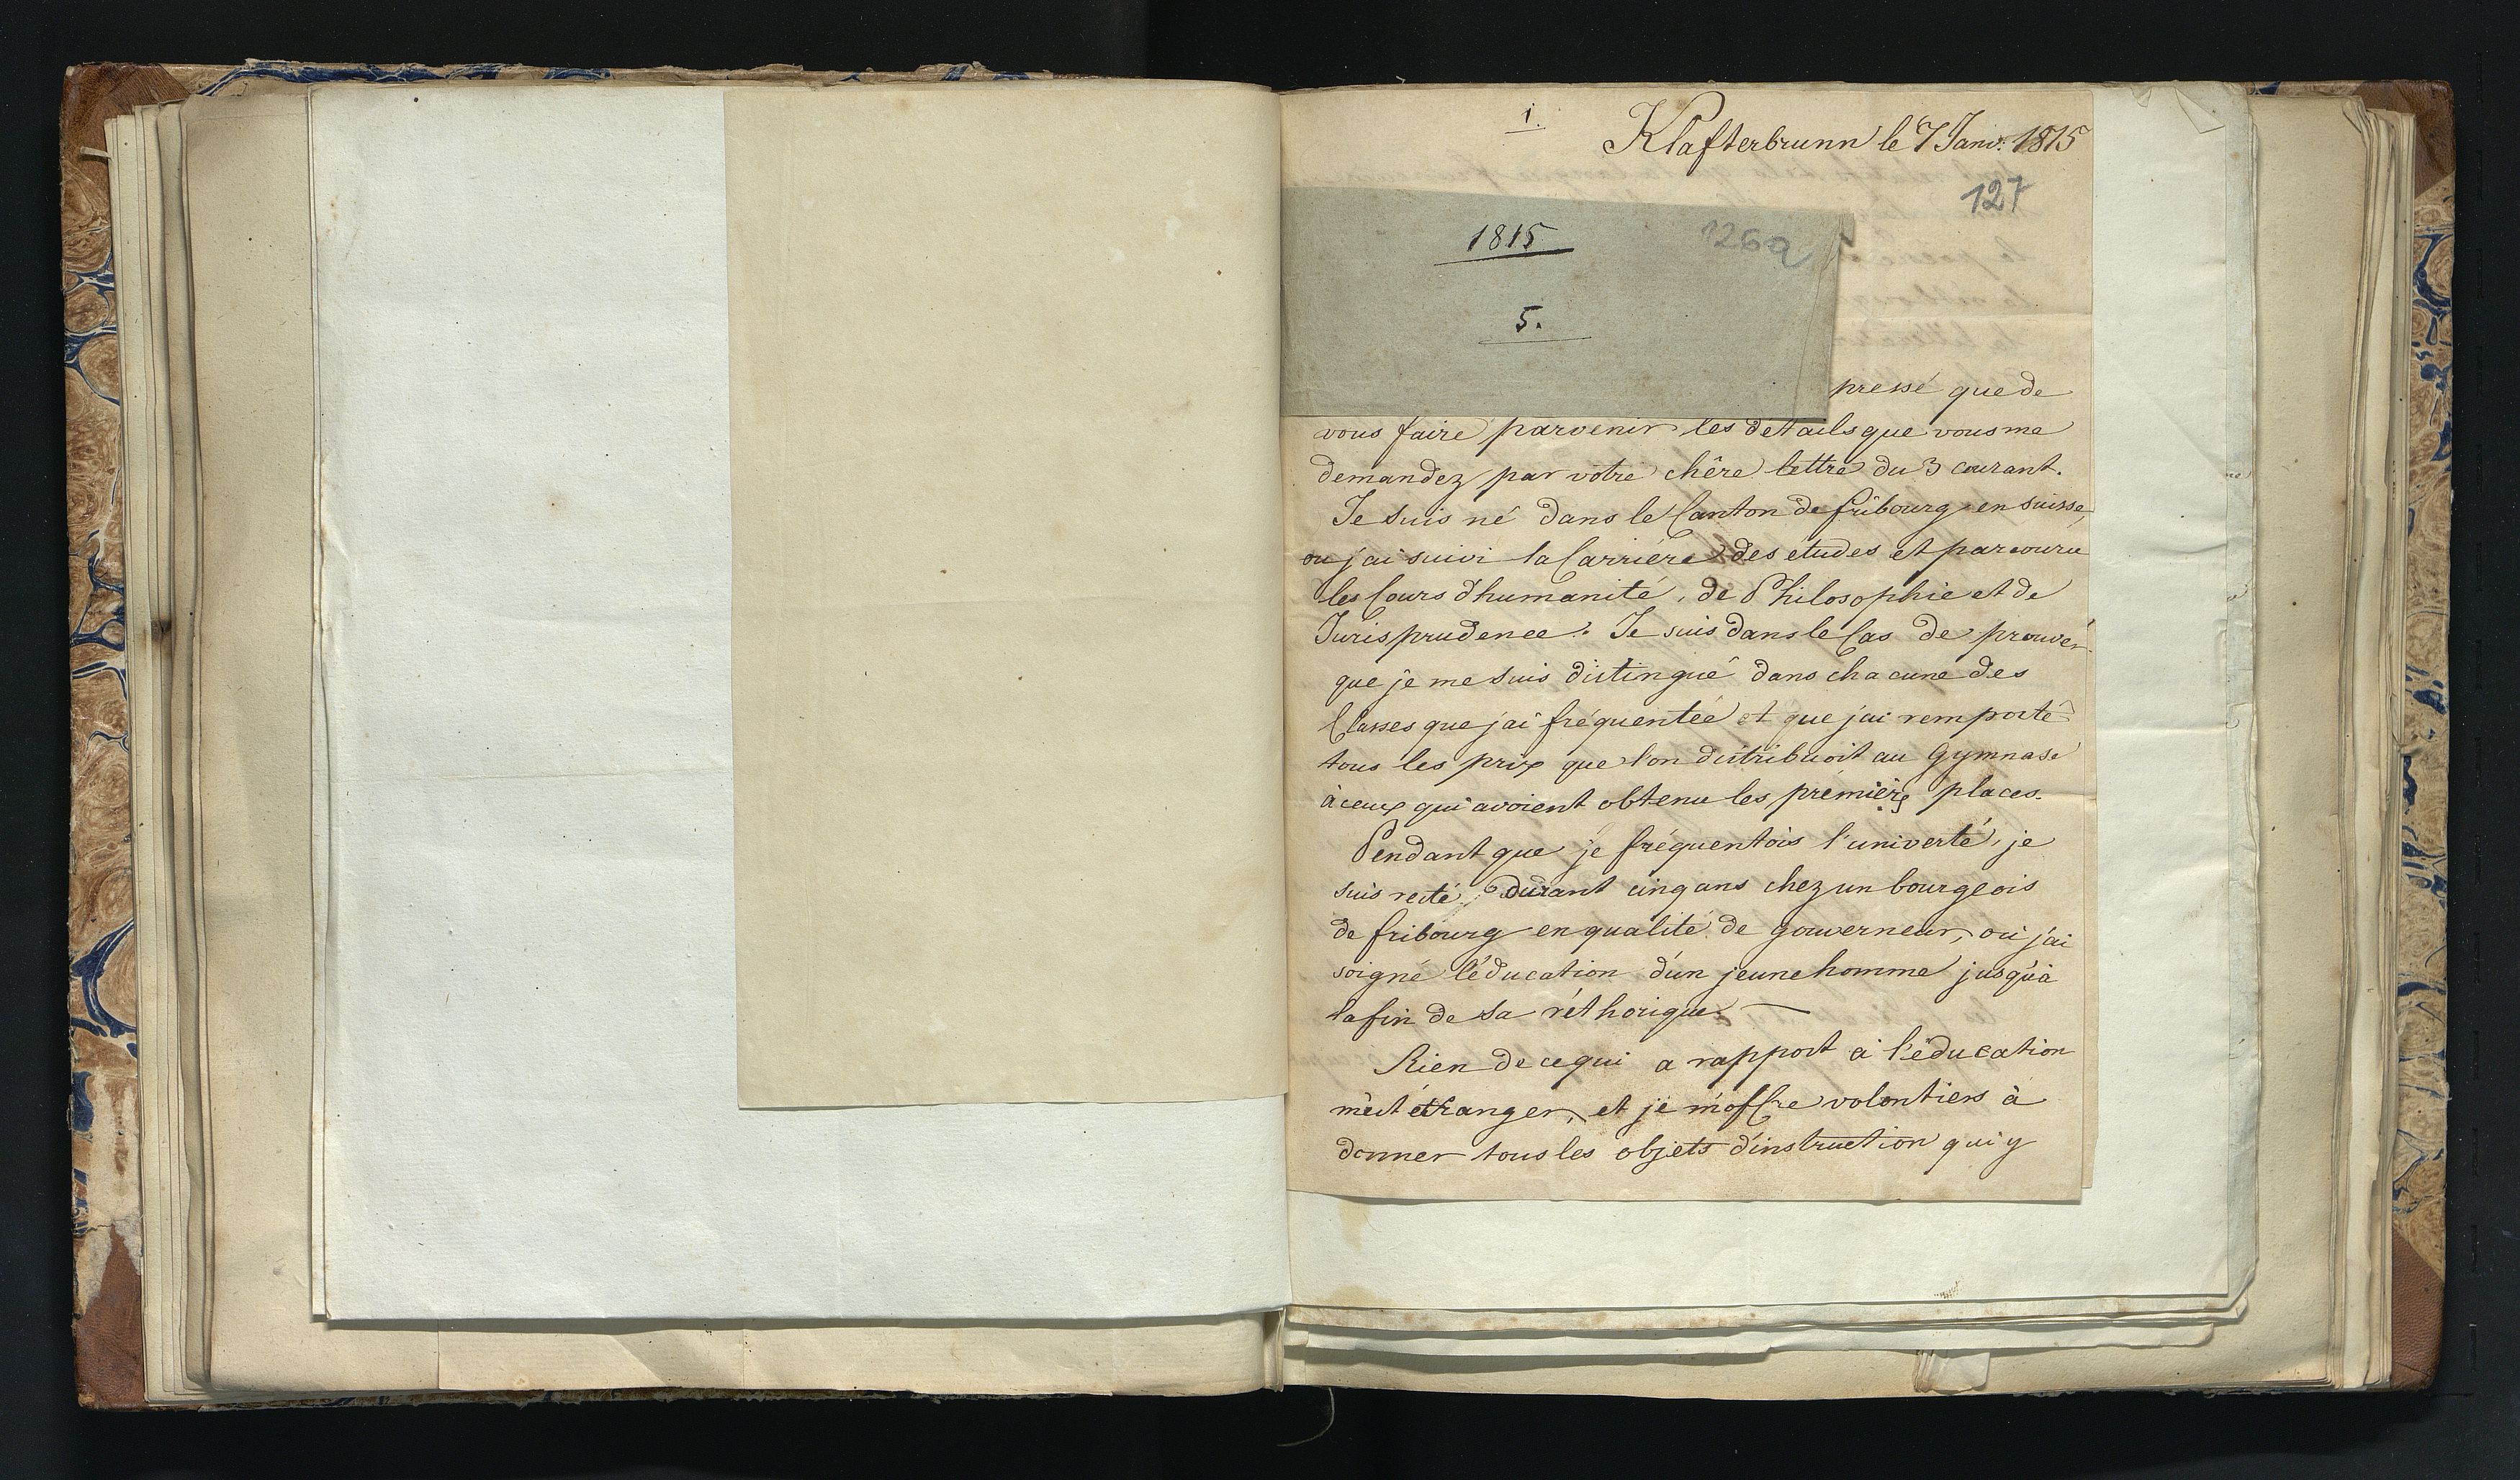 1.
Klafterbrunn le 7 Janv. 1815
127
1815
126a
5.
pressé que de
vous faire parvenir les détails que vous me
demandez par votre chêre lettre du 3 courant.
Je suis né dans le Canton de fribourg en suisse,
ou j'ai suivi la Carrière des études et parcouru
les Cours d'humanité, de Philosophie et de
Jurisprudence. Je suis dans le Cas de prouver
que je me suis distingué dans chacune des
Classes que j'ai fréquentée et que j'ai remporté
tous les prix que l'on distribuoit au Gymnase
à ceux qui avoient obtenu les premières places.
Pendant que je fréquentois l'univerté, je
suis resté durant cinq ans chez un bourgeois
de fribourg en qualité de gouverneur, où j'ai
soigné l'éducation d'un jeune homme jusqu'à
la fin de sa réthorique. —
Rien de ce qui a rapport à l'éducation
m'est étranger, et je m'offre volontiers à
donner tous les objets d'instruction qui y